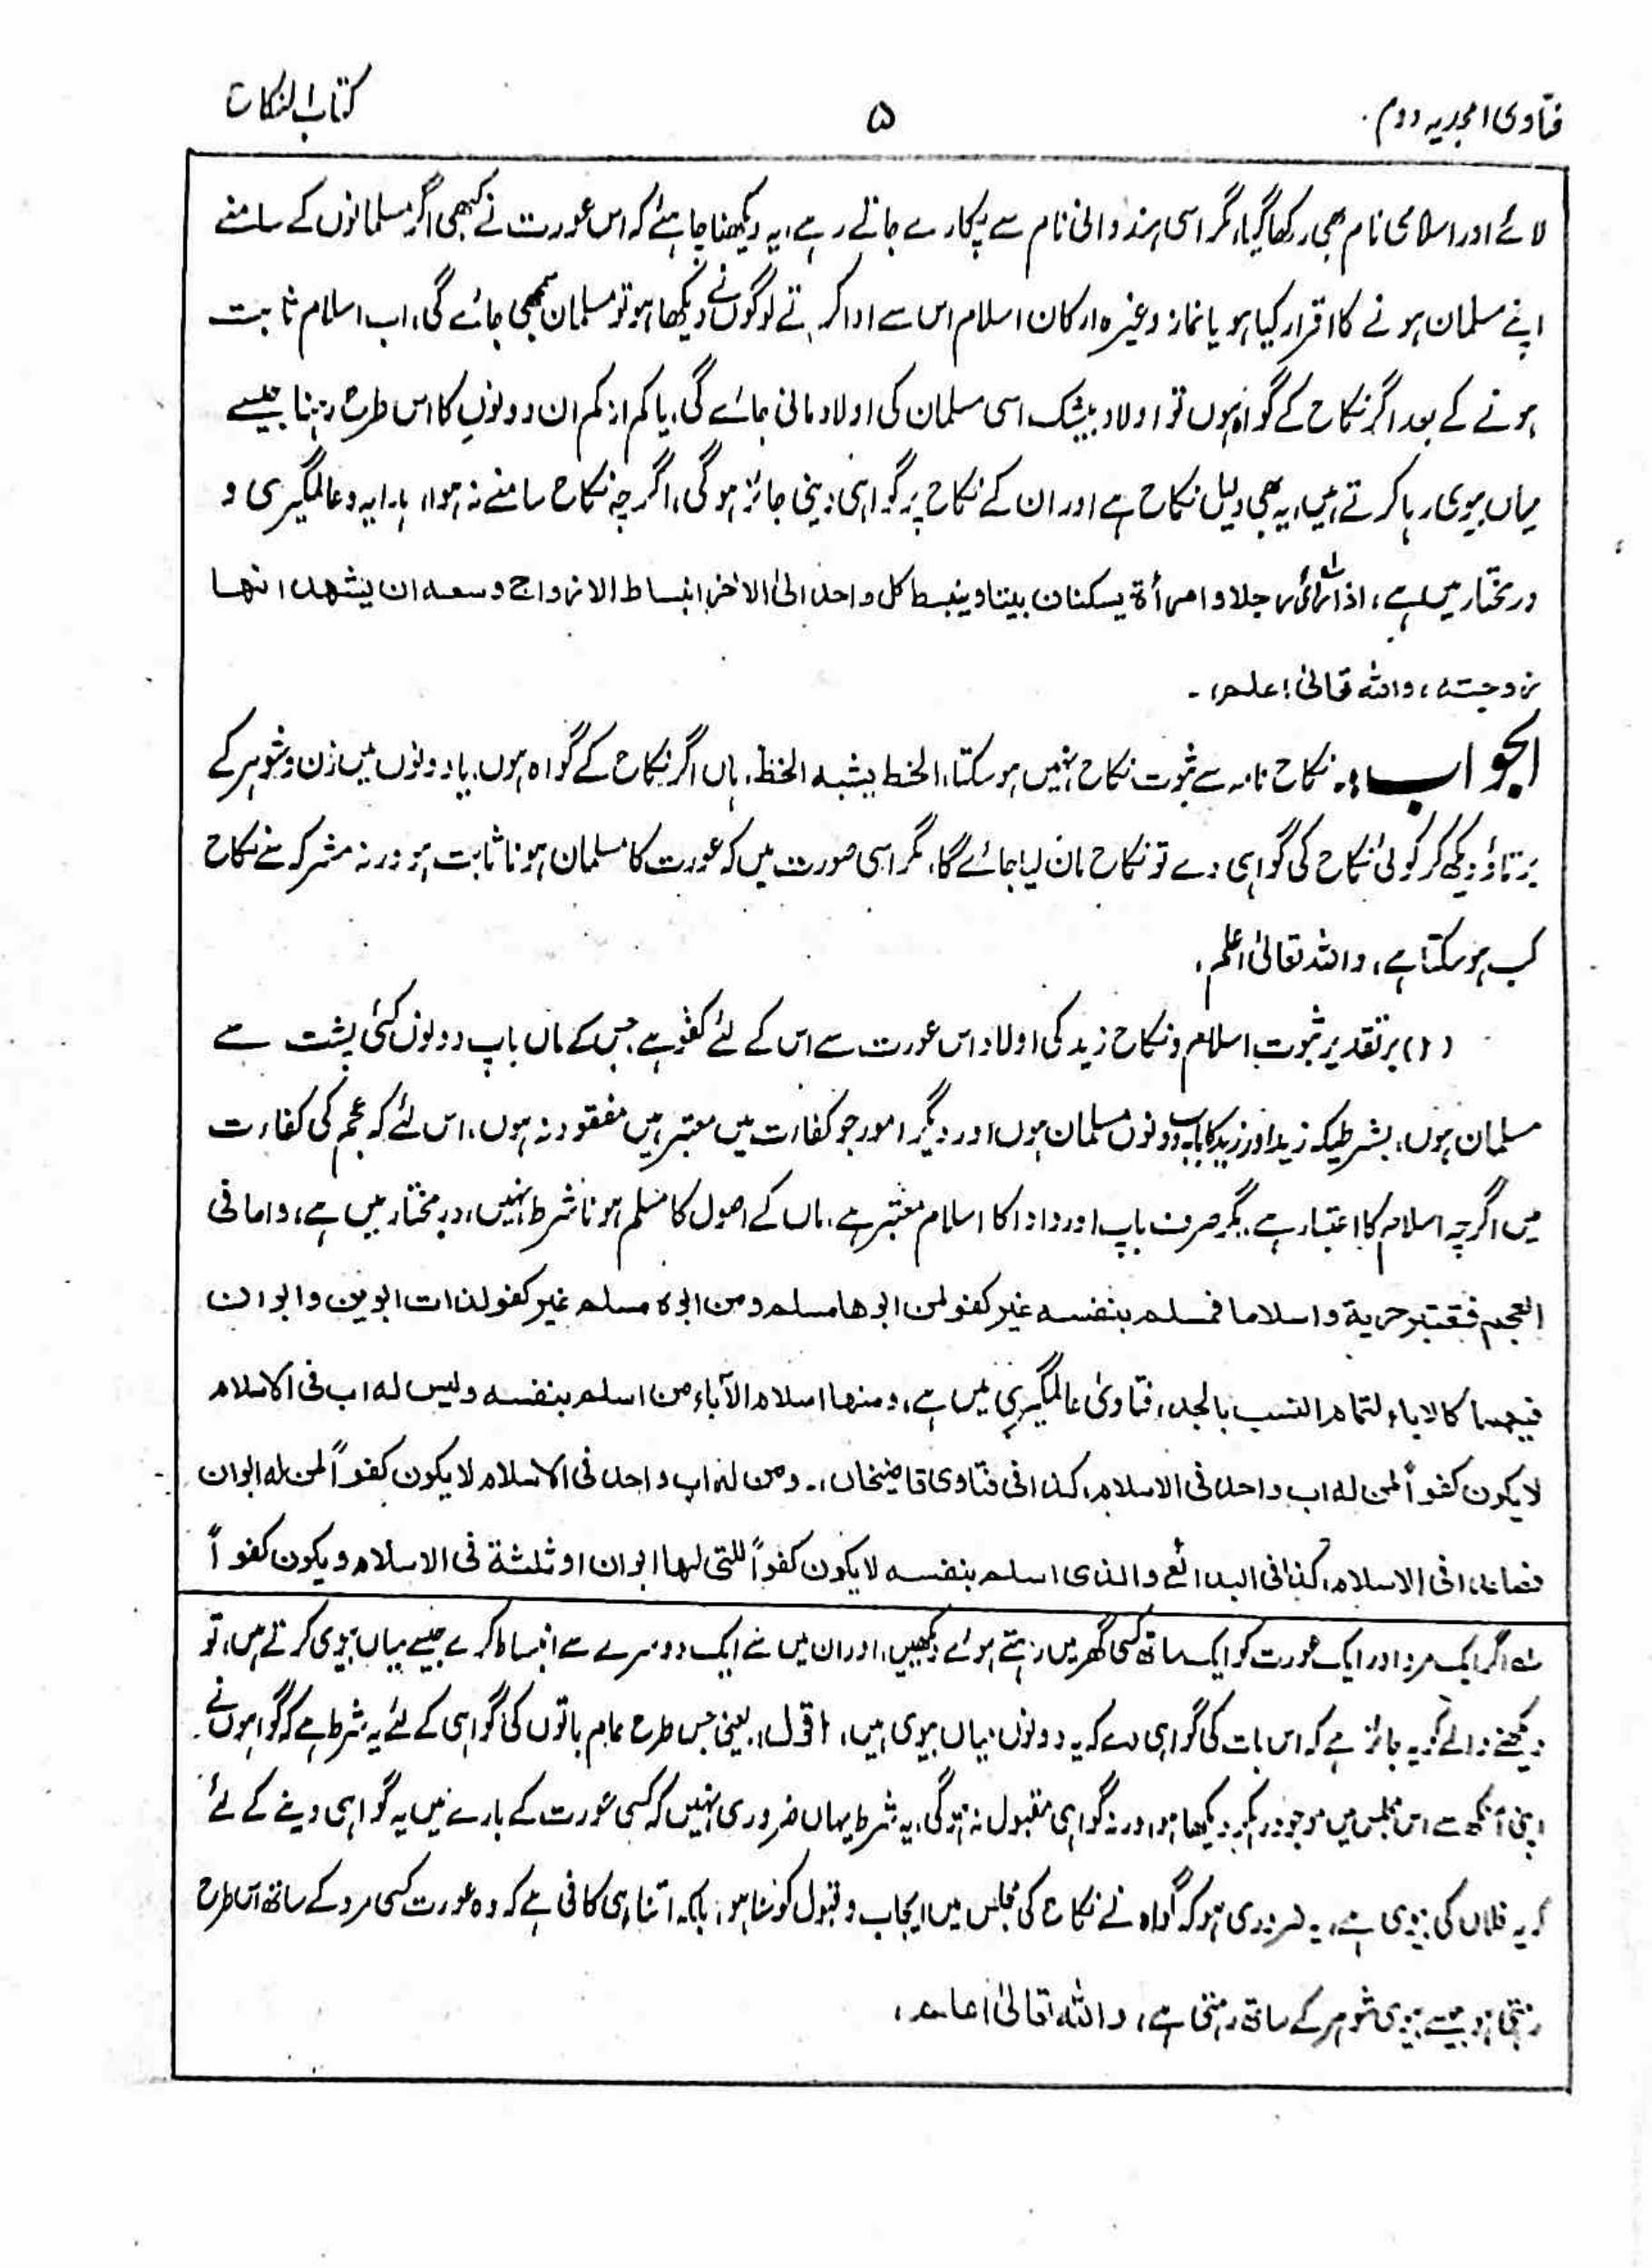 فتاوی امجدیہ دوم
۵
کتاب النکاح
لائے اور اسلامی نام بھی رکھا گیا، مگر اسی ہندوانی نام سے پکارے جاتے رہے، یہ دیکھنا چاہئے کہ اس عورت نے کبھی اگر مسلمانوں کے سامنے
اپنے مسلمان ہونے کا اقرار کیا ہو یا نماز وغیرہ ارکان اسلام اس سے ادا کرتے لوگوں نے دیکھا ہو تو مسلمان سمجھی جائے گی، اب اسلام ثابت
ہونے کے بعد اگر نکاح کے گواہ ہوں تو اولاد بیشک اسی مسلمان کی اولاد مانی جائے گی، یا کم از کم ان دونوں کا اس طرح رہنا جیسے
میاں بیوی رہا کرتے ہیں، یہ بھی دلیل نکاح ہے اور ان کے نکاح پر گواہی دینی جائز ہوگی، اگرچہ نکاح سامنے نہ ہوا، ہدایہ و عالمگیری و
درمختار میں ہے، اذا رأی رجلا و امرأۃ یسکنان بیتا و ینبسط کل واحد الی الاخر انبساط الازواج وسعہ ان یشھد انھا
زوجتہ، واللہ تعالیٰ اعلم، ۔
الجواب :۔ نکاح نامہ سے ثبوت نکاح نہیں ہو سکتا، الخط یشبہ الخط، ہاں اگر نکاح کے گواہ ہوں، یا دونوں میں زن و شوہر کے
برتاؤ دیکھ کر کوئی نکاح کی گواہی دے تو نکاح مان لیا جائے گا، مگر اسی صورت میں کہ عورت کا مسلمان ہونا ثابت ہو ورنہ مشرکہ سے نکاح
کب ہو سکتا ہے، واللہ تعالیٰ اعلم،
(۱) بر تقدیر ثبوت اسلام و نکاح زید کی اولاد اس عورت سے اس کے لئے کفو ہے جس کے ماں باپ دونوں کئی پشت سے
مسلمان ہوں، بشرطیکہ زید اور زید کا باپ دونوں مسلمان ہوں اور دیگر امور جو کفاءت میں معتبر ہیں مفقود نہ ہوں، اس لئے کہ عجم کی کفاءت
میں اگرچہ اسلام کا اعتبار ہے، مگر صرف باپ اور دادا کا اسلام معتبر ہے، ماں کے اصول کا مسلم ہونا شرط نہیں، درمختار میں ہے، و اما فی
العجم فتعتبر حریۃ و اسلاما فمسلم بنفسہ غیر کفو لمن ابوھا مسلم و من ابوہ مسلم غیر کفو لذات ابوین و ابوان
فیھما کالاباء لتمام النسب بالجد، فتاویٰ عالمگیری میں ہے، و منھا اسلام الآباء من اسلم بنفسہ و لیس لہ اب فی الاسلام
لا یکون کفوأ لمن لہ اب واحد فی الاسلام، کذا فی فتاوی قاضیخاں، ۔ و من لہ اب واحد فی الاسلام لا یکون کفوأ لمن لہ ابوان
فصاعدا فی الاسلام، کذا فی البدائع و الذی اسلم بنفسہ لا یکون کفوأ للتی لھا ابوان او ثلثۃ فی الاسلام و یکون کفوأ
اگر ایک مرد اور ایک عورت کو ایک ساتھ کسی گھر میں رہتے ہوئے دیکھیں، اور ان میں سے ایک دوسرے سے انبساط کرے جیسے میاں بیوی کرتے ہیں، تو
دیکھنے والے کو یہ جائز ہے کہ اس بات کی گواہی دے کہ یہ دونوں میاں بیوی ہیں، اقول، یعنی جس طرح عام باتوں کی گواہی کے لئے یہ شرط ہے کہ گواہوں نے
اپنی آنکھ سے اس مجلس میں موجود رہ کر دیکھا ہو، ورنہ گواہی مقبول نہ ہوگی، یہ شرط یہاں ضروری نہیں کہ کسی عورت کے بارے میں یہ گواہی دینے کے لئے
کہ یہ فلاں کی بیوی ہے، یہ ضروری ہو کہ گواہ نے نکاح کی مجلس میں ایجاب و قبول کو سنا ہو، بلکہ اتنا ہی کافی ہے کہ وہ عورت کسی مرد کے ساتھ اس طرح
رہتی ہو جیسے بیوی شوہر کے ساتھ رہتی ہے، واللہ تعالیٰ اعلم،